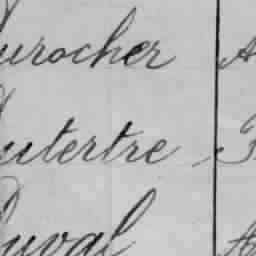 urocher A
utertre
uval A